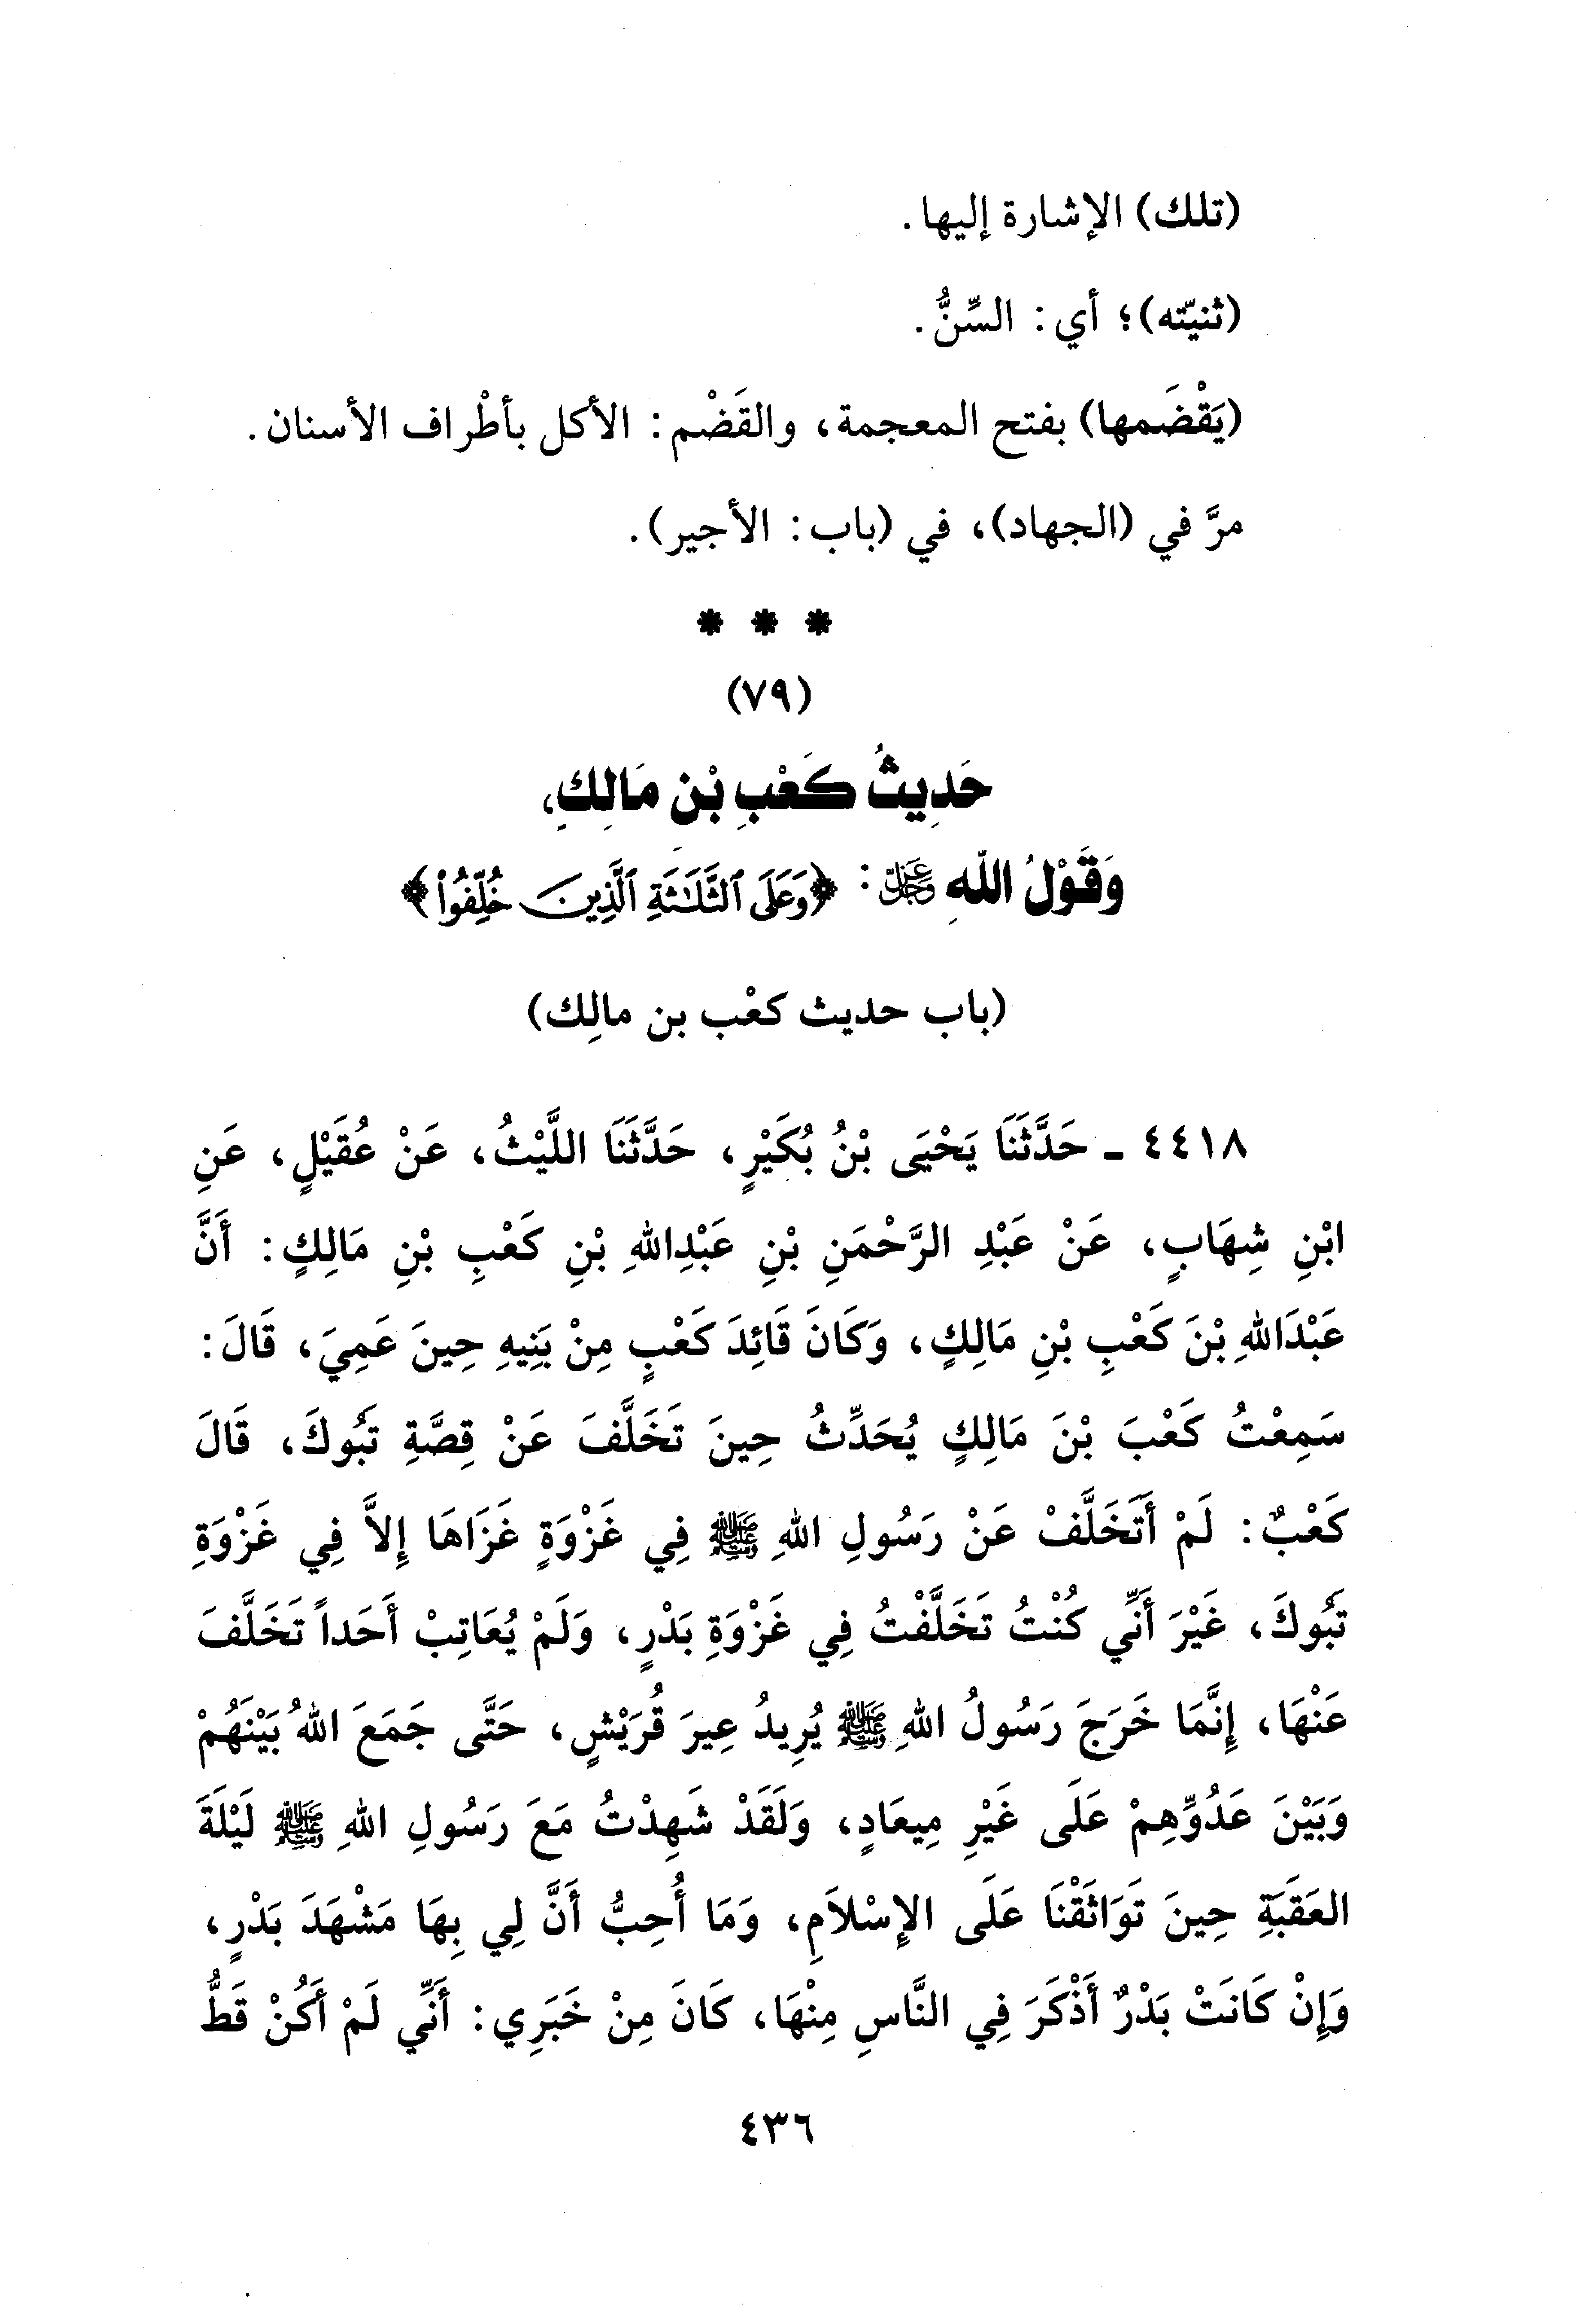 (تلك) الإشارة إليها.
(ثنيّته)؛ أي: السِّنُّ.
(يَقْضَمها) بفتح المعجمة، والقَضْم: الأكل بأطْراف الأسنان.
مرَّ في (الجهاد)، في (باب: الأجير).
* * *
(٧٩)
حَدِيثُ كَعْبِ بْنِ مَالِكٍ،
وَقَوْلُ اللهِ عَزَّ وَجَلَّ: ﴿وَعَلَى ٱلثَّلَٰثَةِ ٱلَّذِينَ خُلِّفُوا۟﴾
(باب حديث كعْب بن مالِك)
٤٤١٨ - حَدَّثَنَا يَحْيَى بْنُ بُكَيْرٍ، حَدَّثَنَا اللَّيْثُ، عَنْ عُقَيْلٍ، عَنِ
ابْنِ شِهَابٍ، عَنْ عَبْدِ الرَّحْمَنِ بْنِ عَبْدِاللهِ بْنِ كَعْبِ بْنِ مَالِكٍ: أَنَّ
عَبْدَاللهِ بْنَ كَعْبِ بْنِ مَالِكٍ، وَكَانَ قَائِدَ كَعْبٍ مِنْ بَنِيهِ حِينَ عَمِيَ، قَالَ:
سَمِعْتُ كَعْبَ بْنَ مَالِكٍ يُحَدِّثُ حِينَ تَخَلَّفَ عَنْ قِصَّةِ تَبُوكَ، قَالَ
كَعْبٌ: لَمْ أَتَخَلَّفْ عَنْ رَسُولِ اللهِ ﷺ فِي غَزْوَةٍ غَزَاهَا إِلاَّ فِي غَزْوَةِ
تَبُوكَ، غَيْرَ أَنِّي كُنْتُ تَخَلَّفْتُ فِي غَزْوَةِ بَدْرٍ، وَلَمْ يُعَاتِبْ أَحَداً تَخَلَّفَ
عَنْهَا، إِنَّمَا خَرَجَ رَسُولُ اللهِ ﷺ يُرِيدُ عِيرَ قُرَيْشٍ، حَتَّى جَمَعَ اللهُ بَيْنَهُمْ
وَبَيْنَ عَدُوِّهِمْ عَلَى غَيْرِ مِيعَادٍ، وَلَقَدْ شَهِدْتُ مَعَ رَسُولِ اللهِ ﷺ لَيْلَةَ
العَقَبَةِ حِينَ تَوَاثَقْنَا عَلَى الإِسْلاَمِ، وَمَا أُحِبُّ أَنَّ لِي بِهَا مَشْهَدَ بَدْرٍ،
وَإِنْ كَانَتْ بَدْرٌ أَذْكَرَ فِي النَّاسِ مِنْهَا، كَانَ مِنْ خَبَرِي: أَنِّي لَمْ أَكُنْ قَطُّ
٤٣٦